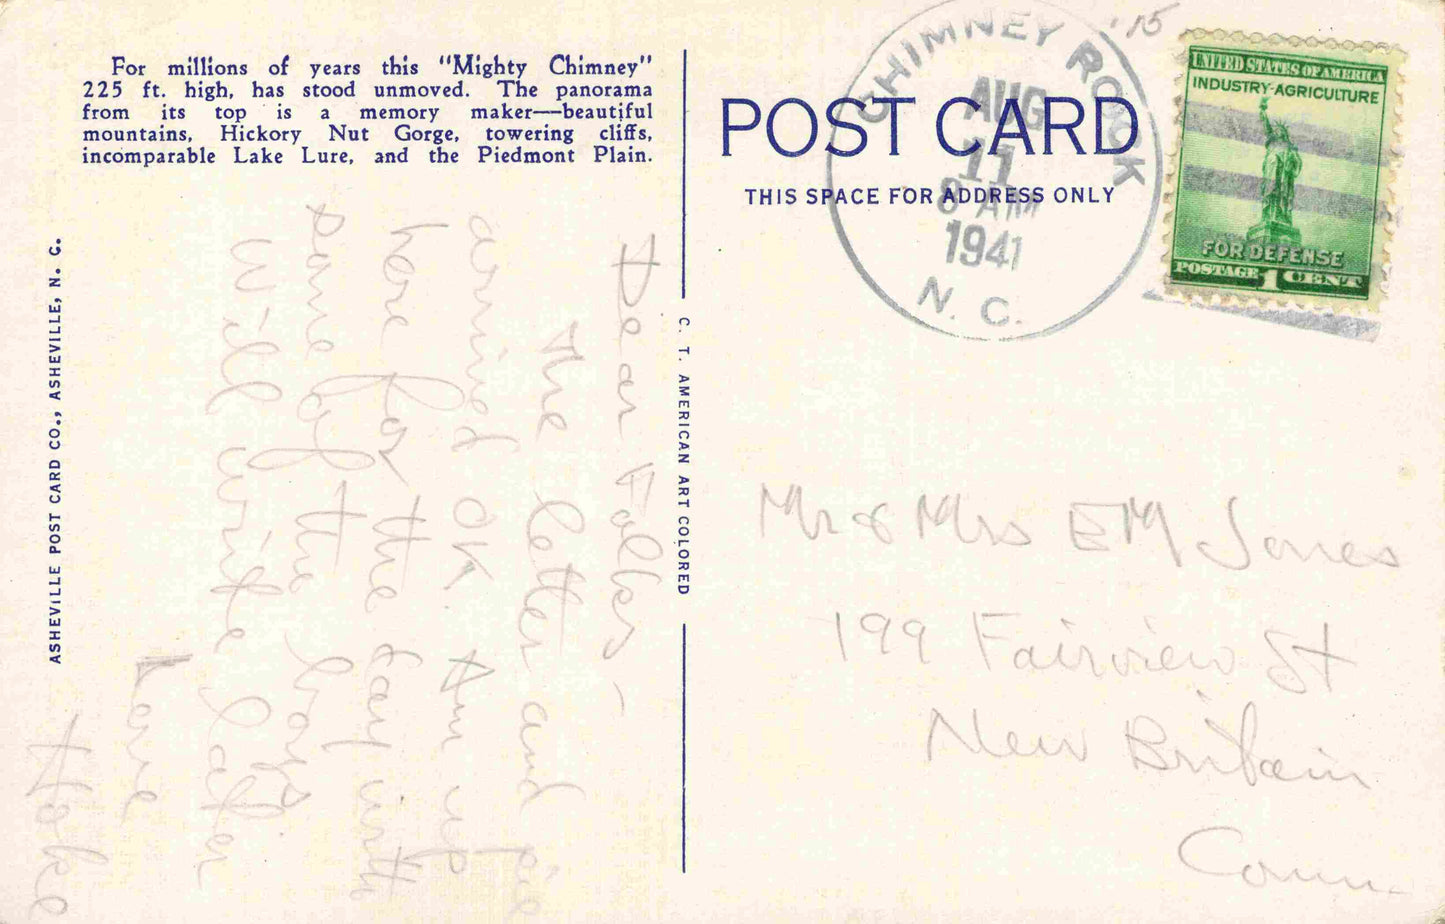 For millions of years this "Mighty Chimney"
225 ft. high, has stood unmoved. The panorama
from its top is a memory maker—beautiful
mountains, Hickory Nut Gorge, towering cliffs,
incomparable Lake Lure, and the Piedmont Plain.
ASHEVILLE POST CARD CO., ASHEVILLE, N. C.
C. T. AMERICAN ART COLORED
POST CARD
THIS SPACE FOR ADDRESS ONLY
CHIMNEY ROCK
AUG
11
8 AM
1941
N. C.
'15
UNITED STATES OF AMERICA
INDUSTRY-AGRICULTURE
FOR DEFENSE
POSTAGE 1 CENT
Dear Folks -
The letter and pie
arrived OK. Am up
here for the day with
some of the boys
Will write later
Love
Hoke
Mr & Mrs EM Jones
199 Fairview St
New Britain
Conn.